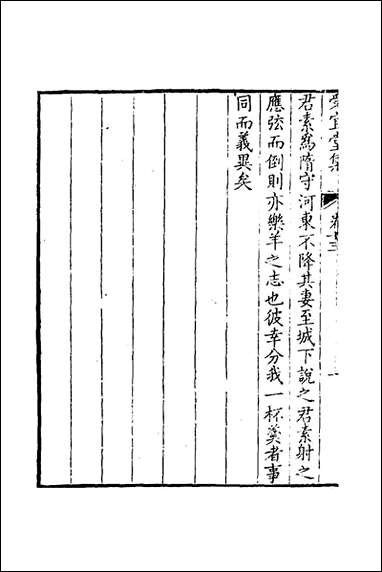 愛宜堂集 卷十三 一
君素爲隋守河東不降其妻至城下說之君素射之
應弦而倒則亦樂羊之志也彼幸分我一杯羹者事
同而義異矣